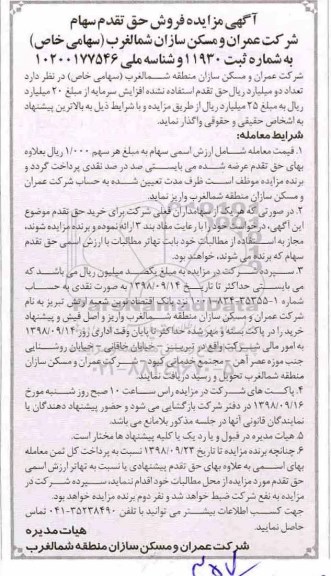 آگهی مزایده فروش حق تقدم سهام
شرکت عمران و مسکن سازان شمالغرب (سهامی خاص)
به شماره ثبت ۱۱۹۳۰ و شناسه ملی ۱۰۲۰۰۱۷۷۵۴۶
شرکت عمران و مسکن سازان منطقه شمالغرب (سهامی خاص) در نظر دارد
تعداد دو میلیارد ریال حق تقدم استفاده نشده افزایش سرمایه از مبلغ ۲۰ میلیارد
ریال به مبلغ ۲۵ میلیارد ریال از طریق مزایده و با شرایط ذیل به بالاترین پیشنهاد
به اشخاص حقیقی و حقوقی واگذار نماید.
شرایط معامله:
۱. قیمت معامله شامل ارزش اسمی سهام به مبلغ هر سهم ۱/۰۰۰ ریال بعلاوه
بهای حق تقدم عرضه شده می بایستی صد در صد نقدی پرداخت گردد و
برنده مزایده موظف است ظرف مدت تعیین شده به حساب شرکت عمران
و مسکن سازان منطقه شمالغرب واریز نماید.
۲. در صورتی که هر یک از سهامداران فعلی شرکت برای خرید حق تقدم موضوع
این آگهی، درخواست خود را با رعایت مفاد بند ۳ ارائه نموده و برنده مزایده شوند،
مجاز به استفاده از مطالبات خود بابت تهاتر مطالبات با ارزش اسمی حق تقدم
سهام که برنده می شوند، خواهند بود.
۳. سپرده شرکت در مزایده به مبلغ یکصد میلیون ریال می باشد که
می بایستی حداکثر تا تاریخ ۱۳۹۸/۰۹/۱۴ به صورت نقدی به حساب
نزد بانک اقتصاد نوین شعبه ارتش تبریز به نام
شرکت عمران و مسکن سازان منطقه شمالغرب واریز و اصل فیش و پیشنهاد
خرید را در پاکت بسته و مهر شده حداکثر تا پایان وقت اداری روز ۱۳۹۸/۰۹/۱۴
به امور مالی شرکت واقع در تبریز - خیابان خاقانی - خیابان روشنایی
جنب موزه عصر آهن - مجتمع خدماتی کبود - شرکت عمران و مسکن سازان
منطقه شمالغرب تحویل و رسید دریافت نمایند.
۴. پاکت های شرکت در مزایده راس ساعت ۱۰ صبح روز شنبه مورخ
۱۳۹۸/۰۹/۱۶ در دفتر شرکت بازگشایی می شود و حضور پیشنهاد دهندگان یا
نمایندگان قانونی آنها در جلسه مذکور بلامانع می باشد.
۵. هیات مدیره در قبول و یا رد یک یا کلیه پیشنهاد ها مختار است.
۶. چنانچه برنده مزایده تا تاریخ ۱۳۹۸/۰۹/۲۳ نسبت به پرداخت کل ثمن معامله
بهای اسمی به علاوه بهای حق تقدم پیشنهادی یا نسبت به تهاتر ارزش اسمی
حق تقدم مورد مزایده از محل مطالبات خود اقدام ننماید، سپرده شرکت در
مزایده به نفع شرکت ضبط خواهد شد و نفر دوم برنده مزایده خواهد بود.
جهت کسب اطلاعات بیشتر می توانید با تلفن ۳۵۲۳۸۴۹۰-۰۴۱ تماس
حاصل نمایید.
هیات مدیره
شرکت عمران و مسکن سازان منطقه شمالغرب